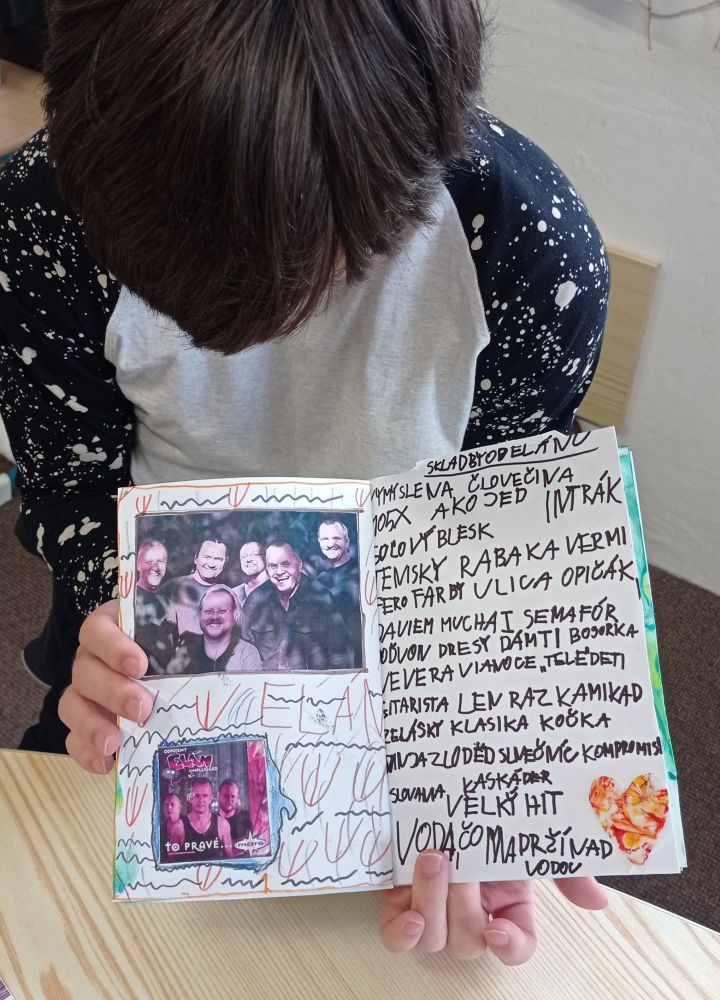 ELÁN
ODPOJENÝ
ELÁN
UNPLUGGED
TO PRAVÉ...
mars
SKLADBYODELÁNU
VYMYSLENA ČLOVEČINA
105X AKO JED INTRÁK
BLESK
RABAKA VERMI
FARBY ULICA OPIČÁK,
MUCHA I SEMAFÓR
DRESY DÁMTI BOSORKA
VEVERA VIANOCE „TELE"DETI
GITARISTA LEN RAZ KAMIKAD
KLASIKA KOČKA
ZLODĚD SLNEČNIC KOMPROMIS
SLOVANA KASKADER
VĚLKÝ HIT
VODA,ČO MA DRŽÍ NAD
VODOU